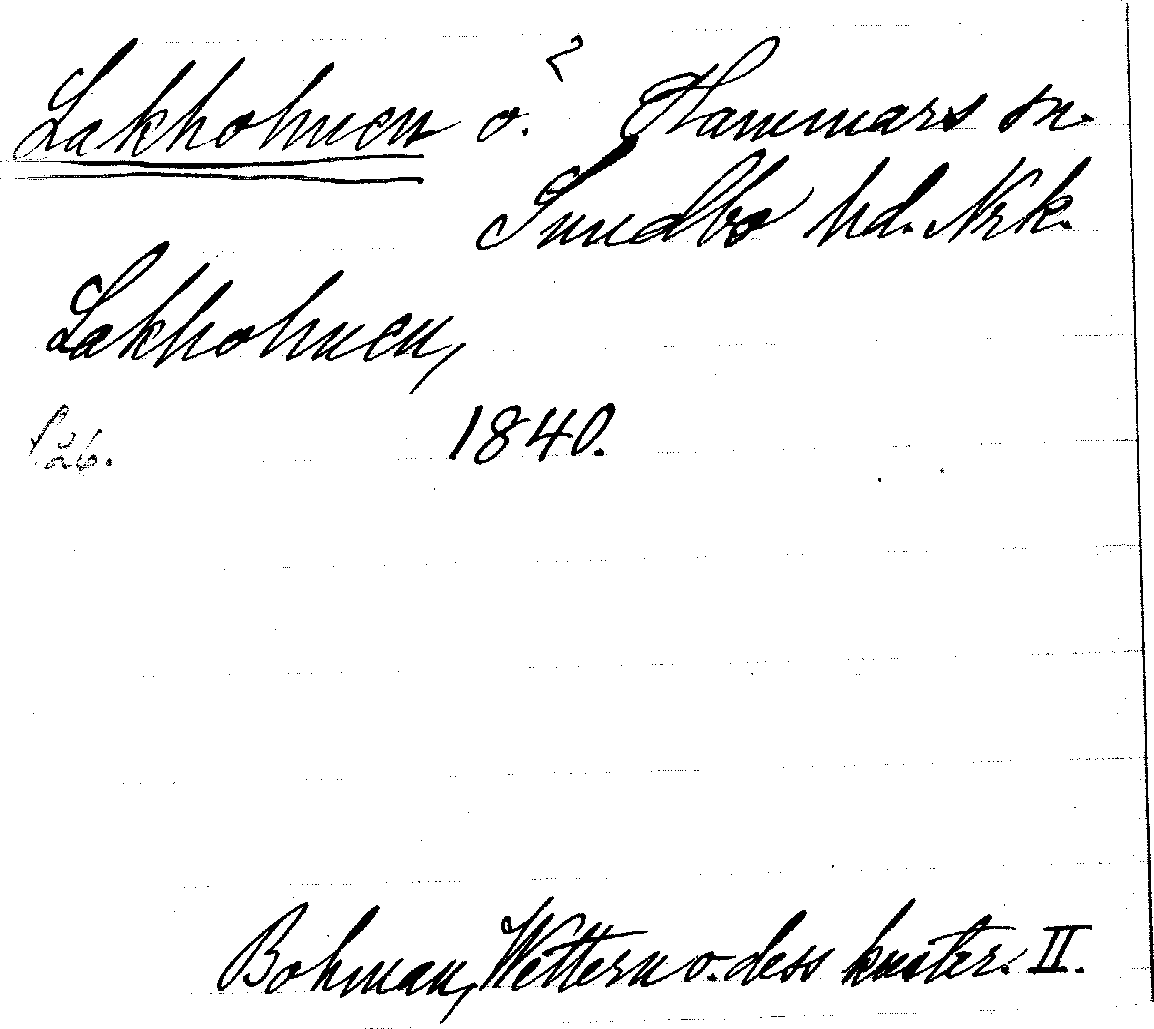 Lakholmen ö.? Hammars sn.
Sundbo hd. Nrk.
Lakholmen,
s. 26. 1840.
Bohman, Wettern o. dess kuster. II.